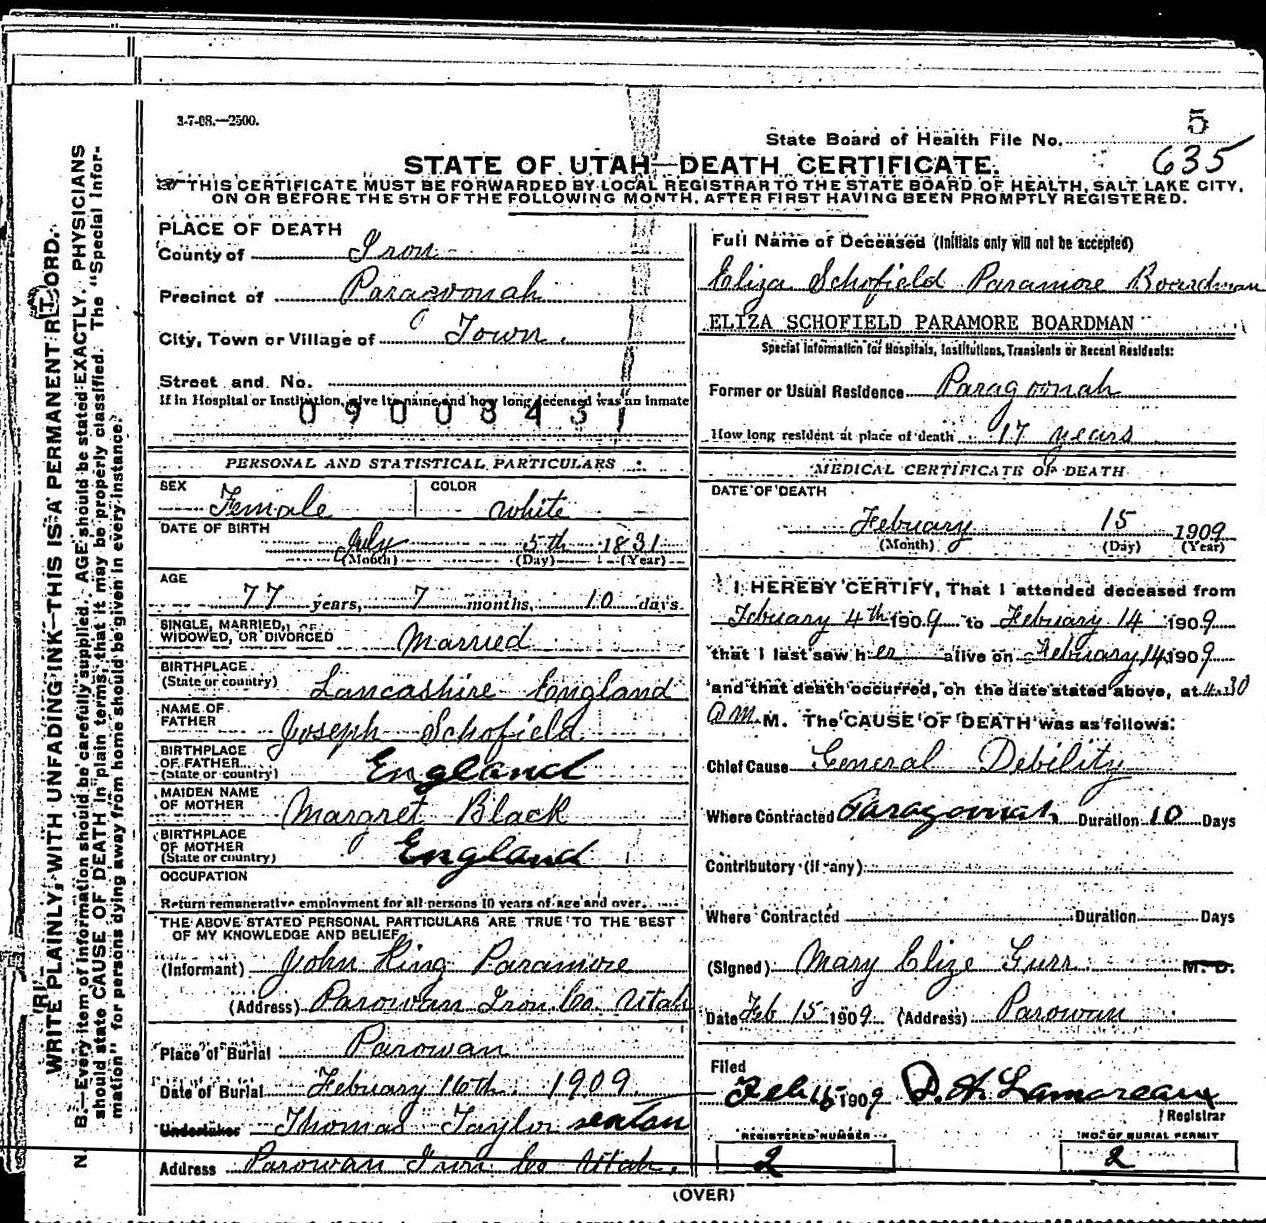 3-7-08.—2500.
5
State Board of Health File No.
635
STATE OF UTAH—DEATH CERTIFICATE.
THIS CERTIFICATE MUST BE FORWARDED BY LOCAL REGISTRAR TO THE STATE BOARD OF HEALTH, SALT LAKE CITY,
ON OR BEFORE THE 5TH OF THE FOLLOWING MONTH, AFTER FIRST HAVING BEEN PROMPTLY REGISTERED.
WRITE PLAINLY, WITH UNFADING INK—THIS IS A PERMANENT RECORD.
N. B.—Every item of information should be carefully supplied. AGE should be stated EXACTLY. PHYSICIANS
should state CAUSE OF DEATH in plain terms, that it may be properly classified. The "Special Infor-
mation" for persons dying away from home should be given in every instance.
PLACE OF DEATH
County of Iron
Precinct of Paragoonah
City, Town or Village of Town.
Street and No.
If in Hospital or Institution, give its name and how long deceased was an inmate
0 9 0 0 3 4 3 1
PERSONAL AND STATISTICAL PARTICULARS
SEX Female COLOR white
DATE OF BIRTH
July 5th 1831
(Month) (Day) (Year)
AGE
77 years, 7 months, 10 days
SINGLE, MARRIED,
WIDOWED, OR DIVORCED Married
BIRTHPLACE
(State or country) Lancashire England
NAME OF
FATHER Joseph Schofield
BIRTHPLACE
OF FATHER
(State or country) England
MAIDEN NAME
OF MOTHER Margret Black
BIRTHPLACE
OF MOTHER
(State or country) England
OCCUPATION
Return remunerative employment for all persons 10 years of age and over.
THE ABOVE STATED PERSONAL PARTICULARS ARE TRUE TO THE BEST
OF MY KNOWLEDGE AND BELIEF
(Informant) John King Paramore
(Address) Parowan Iron Co Utah
Place of Burial Parowan
Date of Burial February 16th. 1909
Undertaker Thomas Taylor sexton
Address Parowan Iron Co Utah.
Full Name of Deceased (Initials only will not be accepted)
Eliza Schofield Paramore Boardman
ELIZA SCHOFIELD PARAMORE BOARDMAN
Special Information for Hospitals, Institutions, Transients or Recent Residents:
Former or Usual Residence Paragoonah
How long resident at place of death 17 years
MEDICAL CERTIFICATE OF DEATH
DATE OF DEATH
February 15 1909
(Month) (Day) (Year)
I HEREBY CERTIFY, That I attended deceased from
February 4th 1909 to February 14 1909
that I last saw her alive on February 14 1909
and that death occurred, on the date stated above, at 4.30
a.m. M. The CAUSE OF DEATH was as follows:
Chief Cause General Debility
Where Contracted Paragoonah Duration 10 Days
Contributory (if any)
Where Contracted Duration Days
(Signed) Mary Elize Gurr M. D.
Date Feb 15 1909 (Address) Parowan
Filed
Feb 1909 D. A. Lamoreaux
Registrar
REGISTERED NUMBER
2
NO. OF BURIAL PERMIT
2
(OVER)